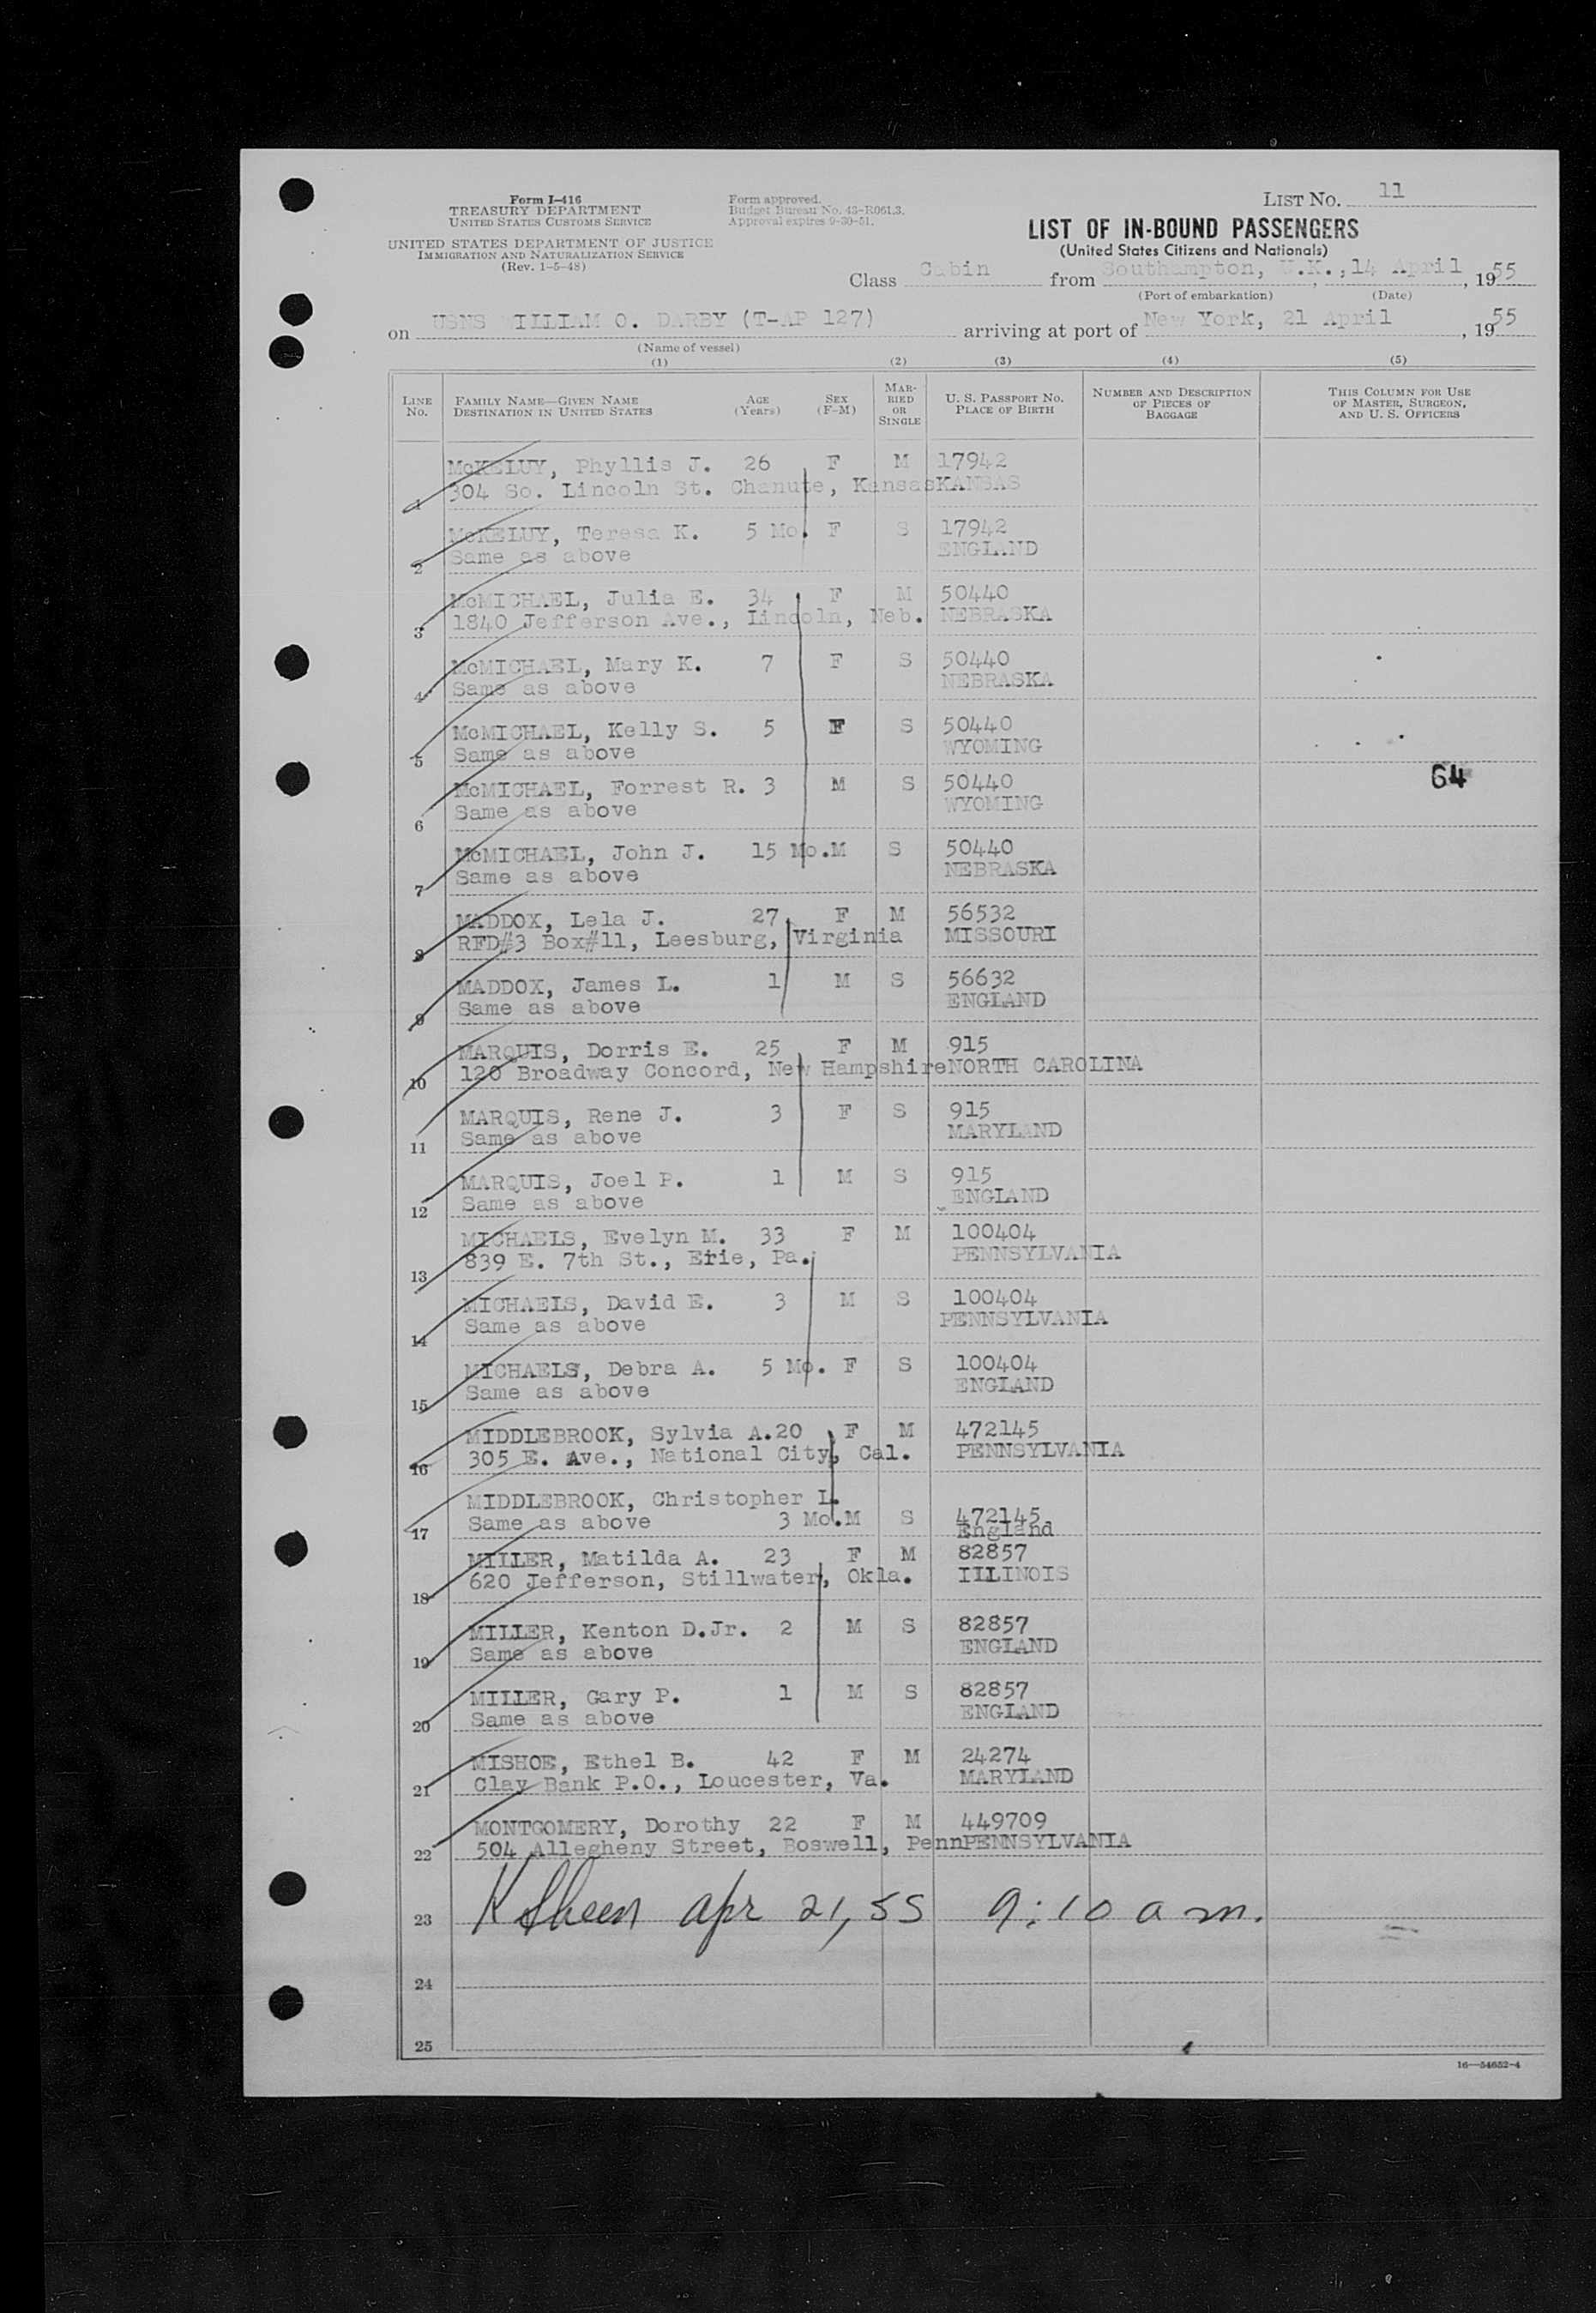 Form I-416
TREASURY DEPARTMENT
UNITED STATES CUSTOMS SERVICE
UNITED STATES DEPARTMENT OF JUSTICE
IMMIGRATION AND NATURALIZATION SERVICE
(Rev. 1-5-48)
Form approved.
Budget Bureau No. 43-R061.3.
Approval expires 9-30-51.
LIST NO. 11
LIST OF IN-BOUND PASSENGERS
(United States Citizens and Nationals)
Class Cabin from Southampton, U.K., 14 April, 1955
(Port of embarkation) (Date)
on USNS WILLIAM O. DARBY (T-AP 127) arriving at port of New York, 21 April, 1955
(Name of vessel)
(1) (2) (3) (4) (5)
LINE No. FAMILY NAME—GIVEN NAME DESTINATION IN UNITED STATES AGE (Years) SEX (F-M) MARRIED OR SINGLE U. S. PASSPORT NO. PLACE OF BIRTH NUMBER AND DESCRIPTION OF PIECES OF BAGGAGE THIS COLUMN FOR USE OF MASTER, SURGEON, AND U. S. OFFICERS
McKELUY, Phyllis J. 26 F M 17942
1 304 So. Lincoln St. Chanute, Kansas KANSAS
McKELUY, Teresa K. 5 Mo. F S 17942
2 Same as above ENGLAND
McMICHAEL, Julia E. 34 F M 50440
3 1840 Jefferson Ave., Lincoln, Neb. NEBRASKA
McMICHAEL, Mary K. 7 F S 50440
4 Same as above NEBRASKA
McMICHAEL, Kelly S. 5 F S 50440
5 Same as above WYOMING
McMICHAEL, Forrest R. 3 M S 50440 64
6 Same as above WYOMING
McMICHAEL, John J. 15 Mo. M S 50440
7 Same as above NEBRASKA
MADDOX, Lela J. 27 F M 56532
8 RFD#3 Box#11, Leesburg, Virginia MISSOURI
MADDOX, James L. 1 M S 56632
9 Same as above ENGLAND
MARQUIS, Dorris E. 25 F M 915
10 120 Broadway Concord, New Hampshire NORTH CAROLINA
MARQUIS, Rene J. 3 F S 915
11 Same as above MARYLAND
MARQUIS, Joel P. 1 M S 915
12 Same as above ENGLAND
MICHAELS, Evelyn M. 33 F M 100404
13 839 E. 7th St., Erie, Pa. PENNSYLVANIA
MICHAELS, David E. 3 M S 100404
14 Same as above PENNSYLVANIA
MICHAELS, Debra A. 5 Mo. F S 100404
15 Same as above ENGLAND
MIDDLEBROOK, Sylvia A. 20 F M 472145
16 305 E. Ave., National City, Cal. PENNSYLVANIA
MIDDLEBROOK, Christopher L.
17 Same as above 3 Mo. M S 472145
England
MILLER, Matilda A. 23 F M 82857
18 620 Jefferson, Stillwater, Okla. ILLINOIS
MILLER, Kenton D.Jr. 2 M S 82857
19 Same as above ENGLAND
MILLER, Gary P. 1 M S 82857
20 Same as above ENGLAND
MISHOE, Ethel B. 42 F M 24274
21 Clay Bank P.O., Loucester, Va. MARYLAND
MONTGOMERY, Dorothy 22 F M 449709
22 504 Allegheny Street, Boswell, Penn PENNSYLVANIA
23 Apr 21, 55 9:10 a m.
24
25
16—54652-4